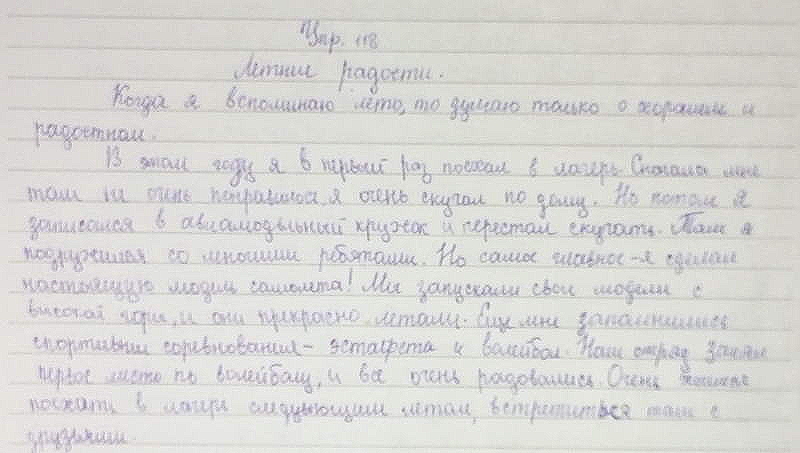 Упр. 118
Летние радости.
Когда я вспоминаю лето, то думаю только о хорошем и
радостном.
В этом году я в первый раз поехал в лагерь. Сначала мне
там не очень понравилось, я очень скучал по дому. Но потом я
записался в авиамодельный кружок и перестал скучать. Там я
подружился со многими ребятами. Но самое главное - я сделал
настоящую модель самолета! Мы запускали свои модели с
высокой горы, и они прекрасно летали. Еще мне запомнились
спортивные соревнования - эстафета и волейбол. Наш отряд занял
первое место по волейболу, и все очень радовались. Очень
поехать в лагерь следующим летом, встретиться там с
друзьями.